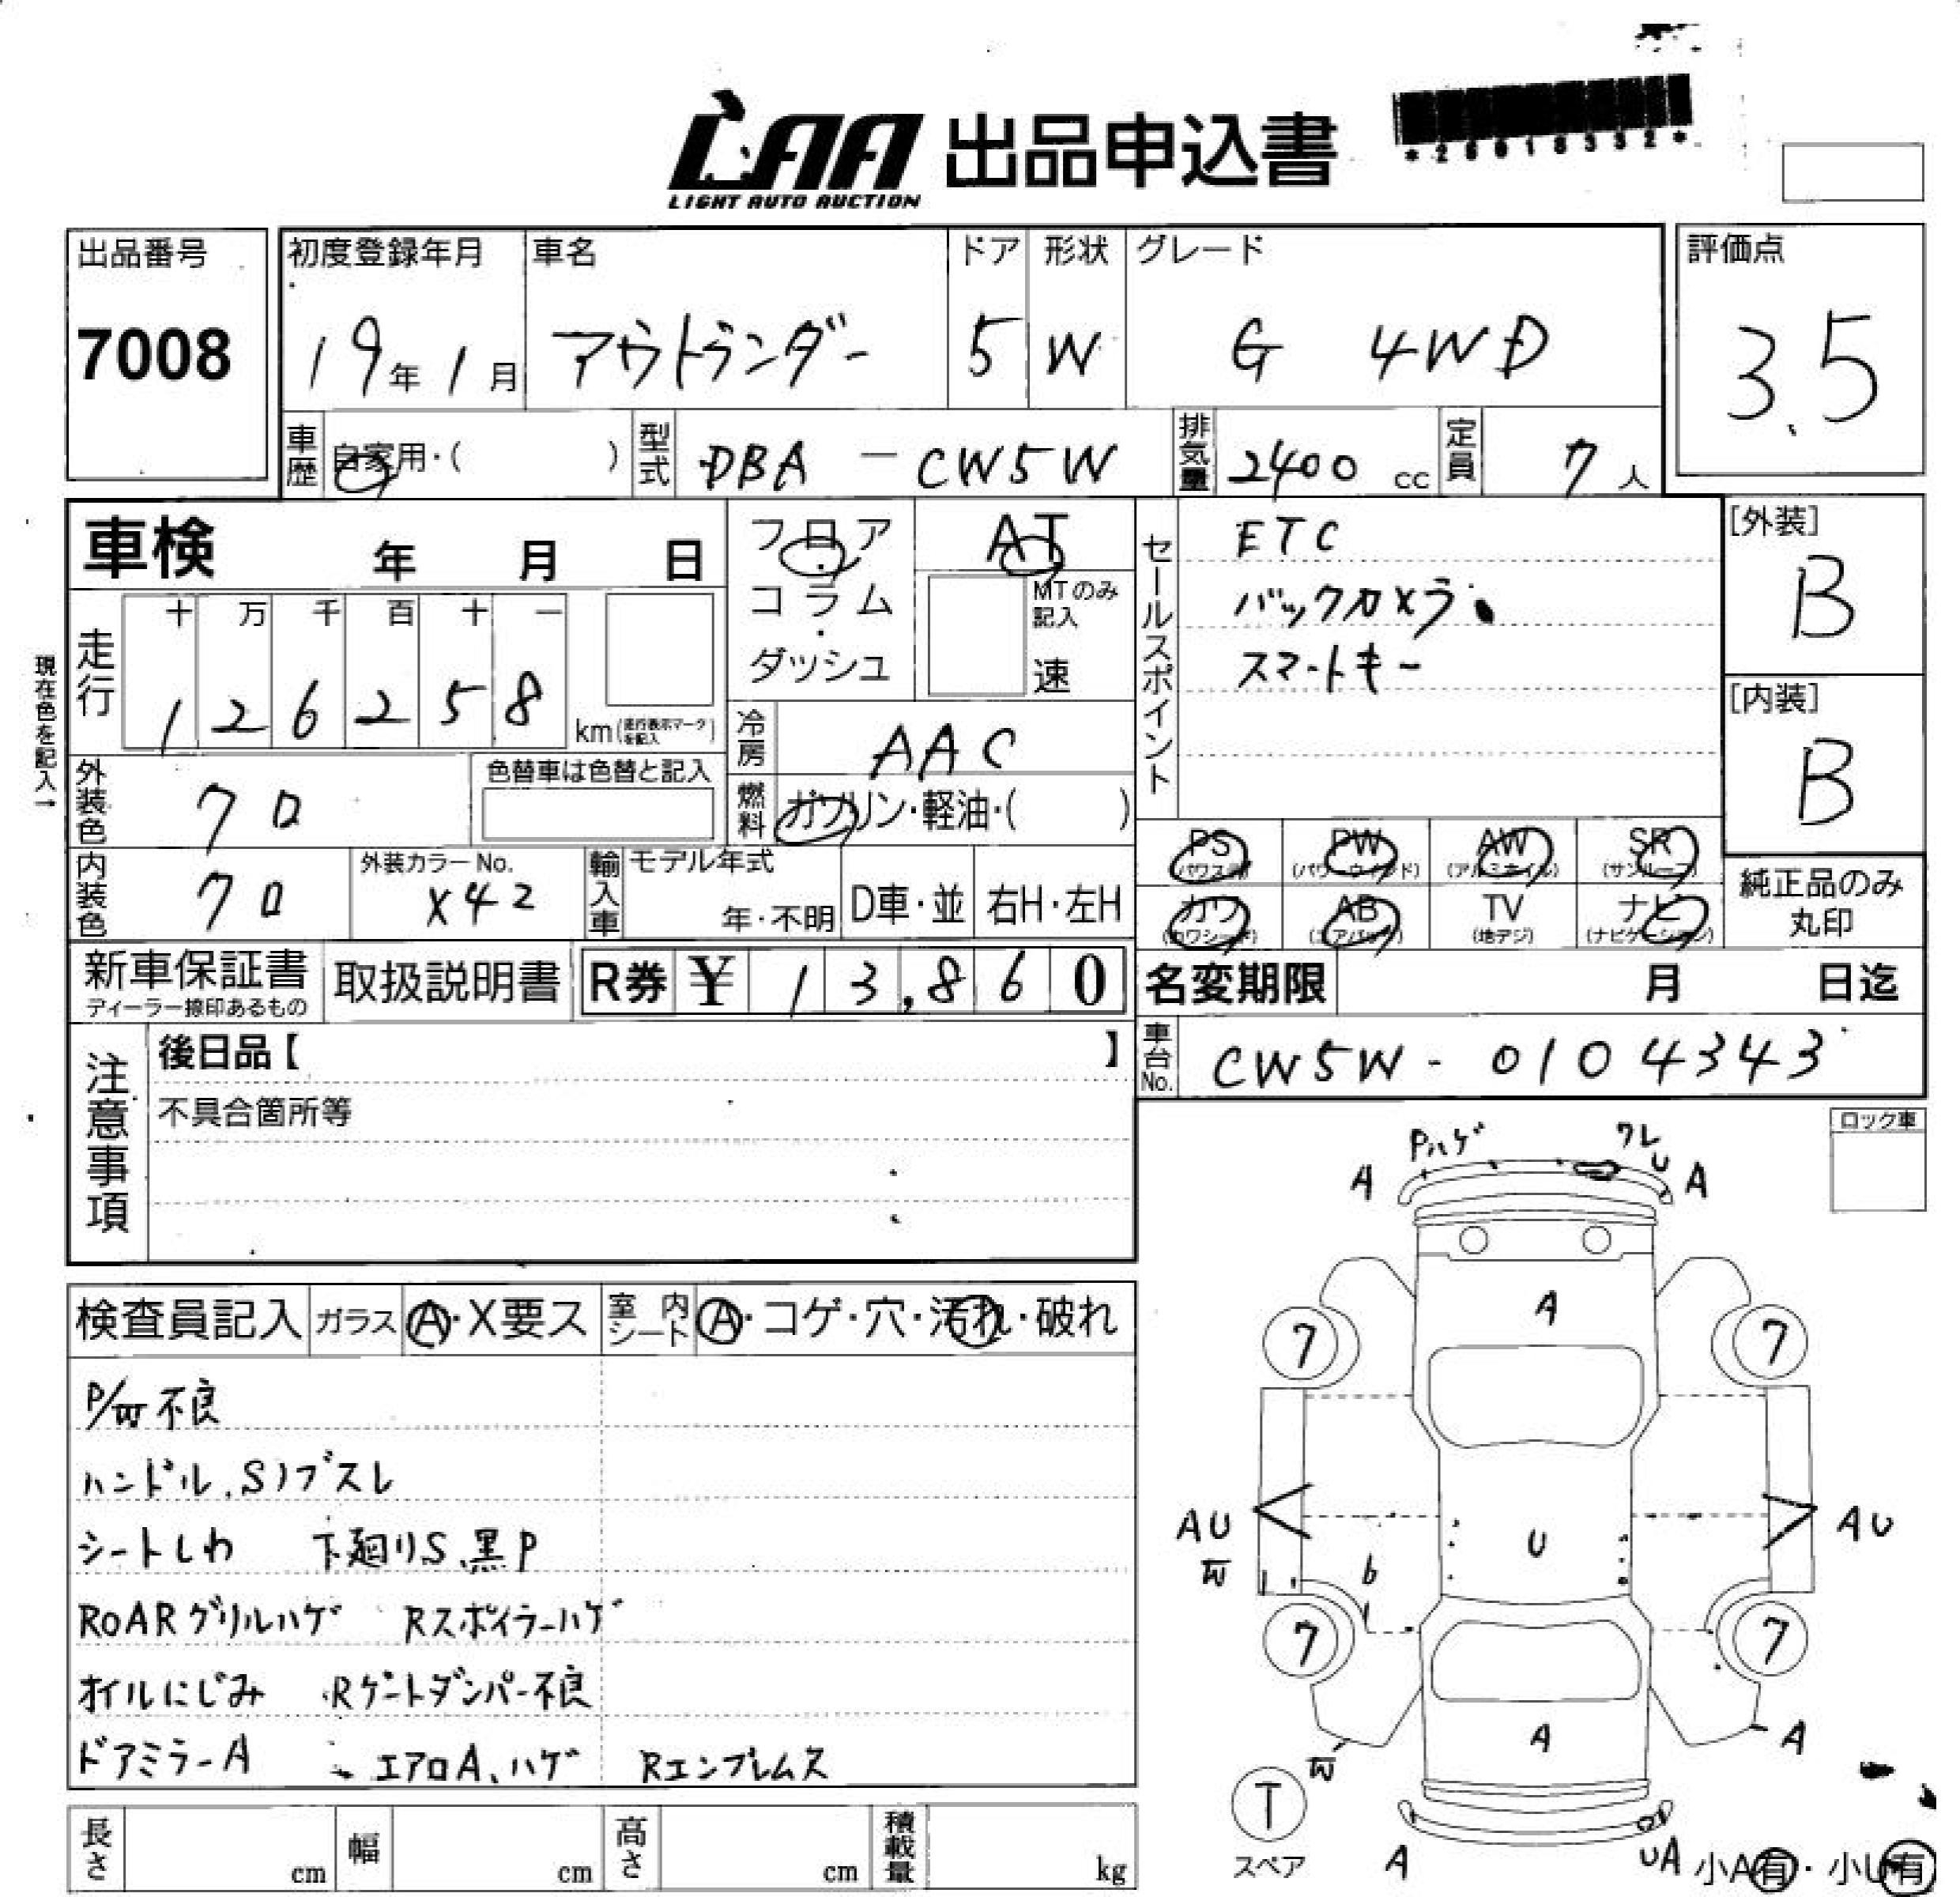 LAA 出品申込書
LIGHT AUTO AUCTION
出品番号
7008
初度登録年月
19年1月
車名
アウトランダー
ドア
5
形状
W
グレード
G 4WD
評価点
3.5
車歴
自家用・( )
型式
DBA-CW5W
排気量
2400 cc
定員
7人
車検 年 月 日
フロア
コラム
・
ダッシュ
AT
MTのみ
記入
速
セールスポイント
ETC
バックカメラ
スマートキー
[外装]
B
[内装]
B
現在色を記入→
走行
十 万 千 百 十 一
1 2 6 2 5 8
km(走行表示マークを記入)
冷房
AAC
外装色
クロ
色替車は色替と記入
燃料
ガソリン・軽油・( )
内装色
クロ
外装カラーNo.
X42
輸入車
モデル年式
年・不明
D車・並
右H・左H
PS
(パワステ)
PW
(パワーウインド)
AW
(アルミホイル)
SR
(サンルーフ)
カワ
(カワシート)
AB
(エアバッグ)
TV
(地デジ)
ナビ
(ナビゲーション)
純正品のみ
丸印
新車保証書
ディーラー捺印あるもの
取扱説明書
R券 ¥ 13,860
名変期限 月 日迄
車台No.
CW5W-0104343
注意事項
後日品【 】
不具合箇所等
ロック車
Pハゲ
ワレ
U
A
A
A
7
7
AU
U
AU
b
7
7
A
A
T
スペア
A
UA
小A有・小U有
検査員記入
ガラス
A・X要ス
室内シート
A・コゲ・穴・汚れ・破れ
P/W不良
ハンドル、Sノブスレ
シートしわ 下廻りS、黒P
RoARグリルハゲ Rスポイラーハゲ
オイルにじみ Rゲートダンパー不良
ドアミラーA エアロA、ハゲ Rエンブレムス
長さ cm
幅 cm
高さ cm
積載量 kg